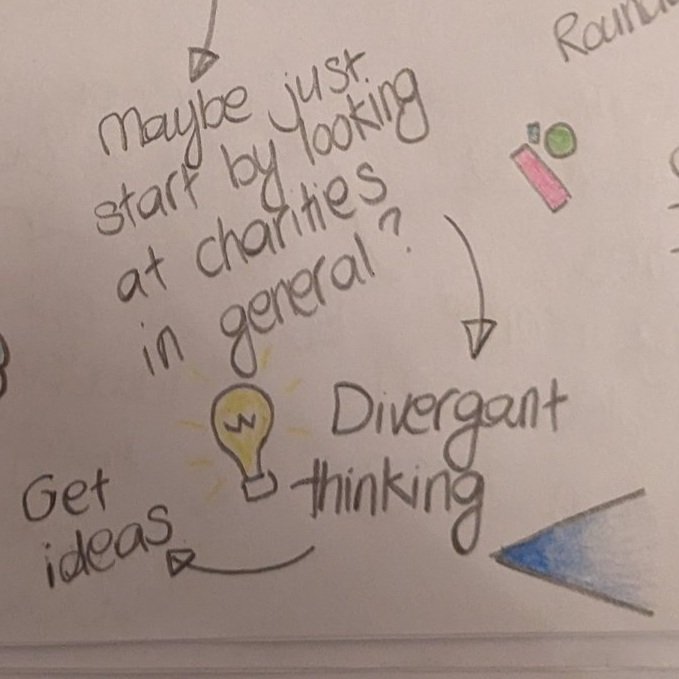 Maybe just
start by looking
at charities
in general?
Divergant
thinking
Get
ideas